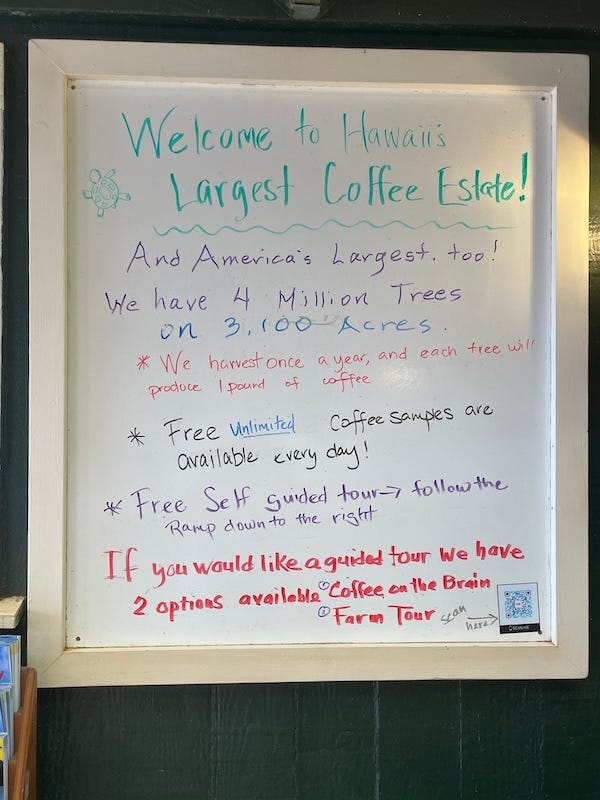 Welcome to Hawaii's
Largest Coffee Estate!
And America's Largest. too!
We have 4 Million Trees
on 3,100 Acres.
* We harvest once a year, and each tree will
produce 1 pound of coffee
* Free Unlimited Coffee samples are
available every day!
* Free Self guided tour → follow the
Ramp down to the right
If you would like a guided tour We have
2 options available ① Coffee on the Brain
② Farm Tour scan
here →